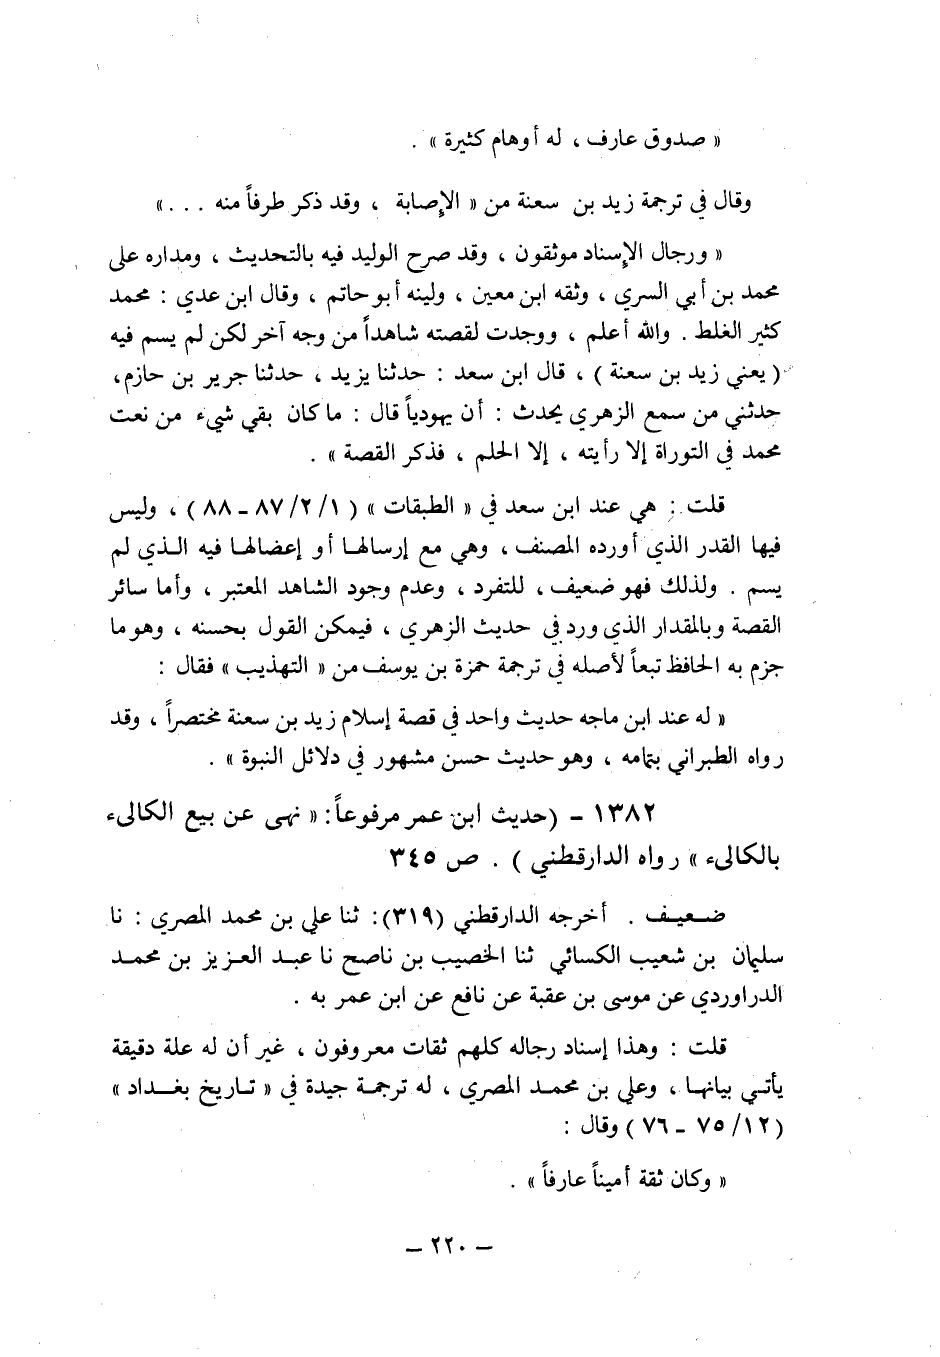 « صدوق عارف ، له أوهام كثيرة » .
وقال في ترجمة زيد بن سعنة من « الإصابة ، وقد ذكر طرفاً منه . . . »
« ورجال الإسناد موثقون ، وقد صرح الوليد فيه بالتحديث ، ومداره على
محمد بن أبي السري ، وثقه ابن معين ، ولينه أبو حاتم ، وقال ابن عدي : محمد
كثير الغلط . والله أعلم ، ووجدت لقصته شاهداً من وجه آخر لكن لم يسم فيه
( يعني زيد بن سعنة ) ، قال ابن سعد : حدثنا يزيد ، حدثنا جرير بن حازم ،
حدثني من سمع الزهري يحدث : أن يهودياً قال : ما كان بقي شيء من نعت
محمد في التوراة إلا رأيته ، إلا الحلم ، فذكر القصة » .
قلت : هي عند ابن سعد في « الطبقات » ( ١/ ٢/ ٨٧ - ٨٨ ) ، وليس
فيها القدر الذي أورده المصنف ، وهي مع إرسالها أو إعضالها فيه الذي لم
يسم . ولذلك فهو ضعيف ، للتفرد ، وعدم وجود الشاهد المعتبر ، وأما سائر
القصة وبالمقدار الذي ورد في حديث الزهري ، فيمكن القول بحسنه ، وهو ما
جزم به الحافظ تبعاً لأصله في ترجمة حمزة بن يوسف من « التهذيب » فقال :
« له عند ابن ماجه حديث واحد في قصة إسلام زيد بن سعنة مختصراً ، وقد
رواه الطبراني بتمامه ، وهو حديث حسن مشهور في دلائل النبوة » .
١٣٨٢ - (حديث ابن عمر مرفوعاً: « نهى عن بيع الكالىء
بالكالىء » رواه الدارقطني ) . ص ٣٤٥
ضعيف . أخرجه الدارقطني (٣١٩): ثنا علي بن محمد المصري : نا
سليمان بن شعيب الكسائي ثنا الخصيب بن ناصح نا عبد العزيز بن محمد
الدراوردي عن موسى بن عقبة عن نافع عن ابن عمر به .
قلت : وهذا إسناد رجاله كلهم ثقات معروفون ، غير أن له علة دقيقة
يأتي بيانها ، وعلي بن محمد المصري ، له ترجمة جيدة في « تاريخ بغداد »
( ١٢/ ٧٥ - ٧٦ ) وقال :
« وكان ثقة أميناً عارفاً » .
- ٢٢٠ -